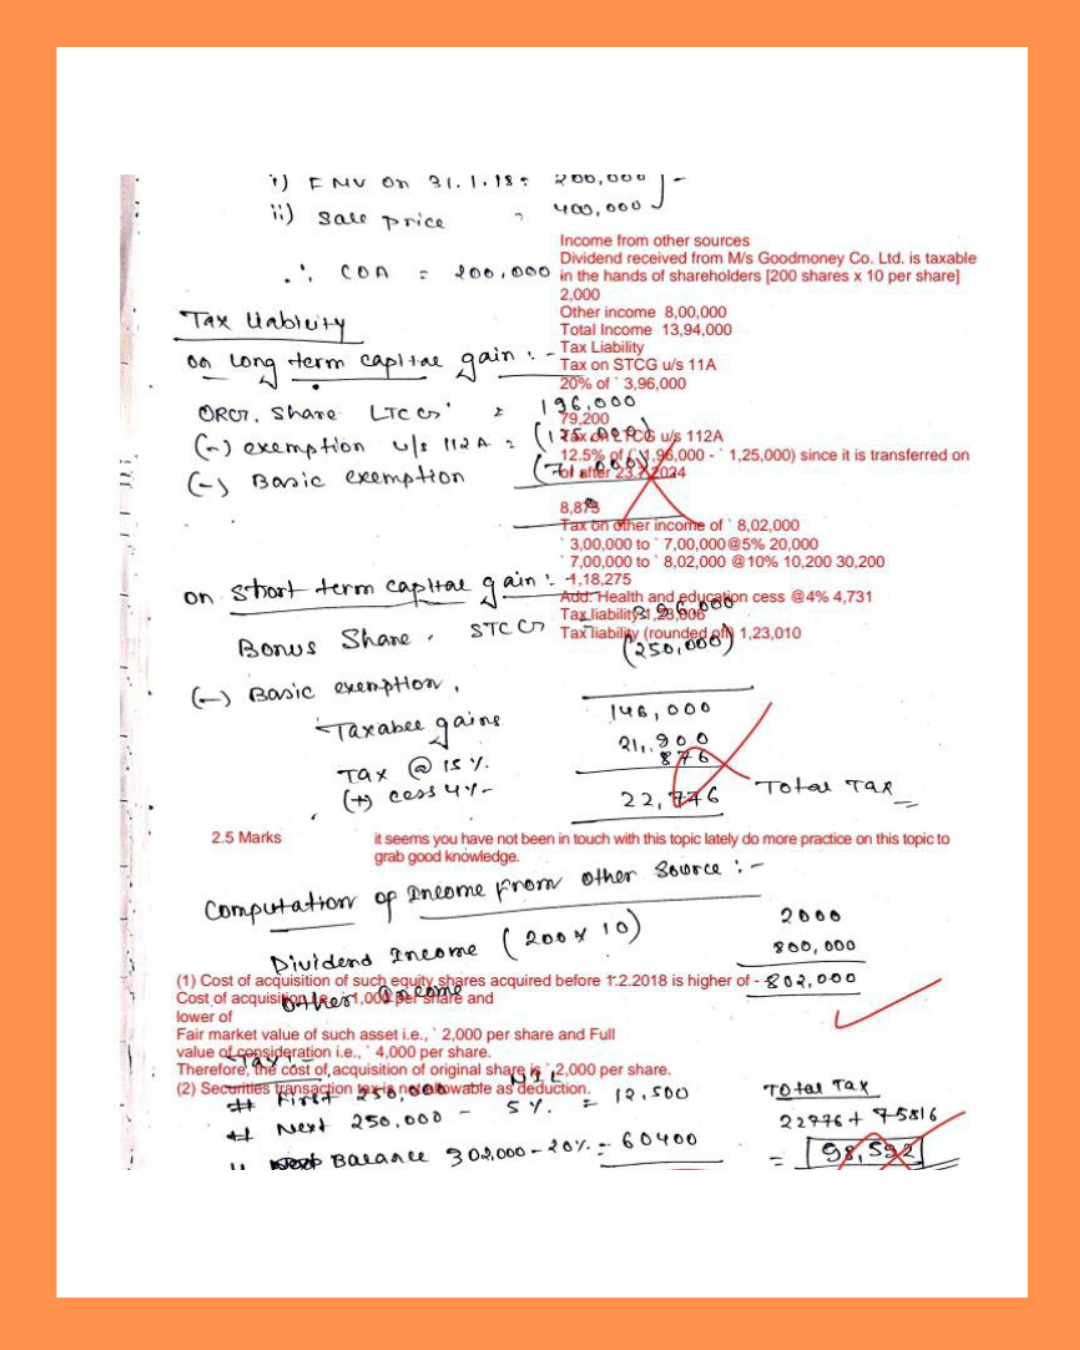 i) FMV on 31.1.18 = 200,000
ii) Sale price = 400,000
∴ COA = 200,000
Income from other sources
Dividend received from M/s Goodmoney Co. Ltd. is taxable
in the hands of shareholders [200 shares x 10 per share]
2,000
Other income 8,00,000
Total Income 13,94,000
Tax Liability
Tax on STCG u/s 11A
20% of ` 3,96,000
79,200
Tax on LTCG u/s 112A
12.5% of (` 1,96,000 - ` 1,25,000) since it is transferred on
or after 23.7.2024
8,875
Tax on other income of ` 8,02,000
` 3,00,000 to ` 7,00,000@5% 20,000
` 7,00,000 to ` 8,02,000 @10% 10,200 30,200
1,18,275
Add: Health and education cess @4% 4,731
Tax liability 1,23,006
Tax liability (rounded off) 1,23,010
Tax Liability
on long term capital gain :-
ORG. Share LTCG = 196,000
(-) exemption u/s 112A = (125,000)
(-) Basic exemption (71,000)
on Short term capital gain :-
Bonus Share. STCG = 396,000
(-) Basic exemption, (250,000)
Taxabee gains 146,000
Tax @ 15% 21,900
(+) cess 4%- 876
22,776 Total Tax
2.5 Marks
it seems you have not been in touch with this topic lately do more practice on this topic to
grab good knowledge.
Computation of Income From other Source :-
Dividend Income (200 x 10) 2000
Other Income 800,000
802,000
(1) Cost of acquisition of such equity shares acquired before 1.2.2018 is higher of -
Cost of acquisition i.e., ` 1,000 per share and
lower of
Fair market value of such asset i.e., ` 2,000 per share and Full
value of consideration i.e., ` 4,000 per share.
Therefore, the cost of acquisition of original share is ` 2,000 per share.
(2) Securities transaction tax is not allowable as deduction.
Tax :-
# First 250,000 NIL
# Next 250,000 - 5%. = 12,500
Balance 302,000 - 20%. = 60400
Total Tax
22776 + 75816
= 98,592